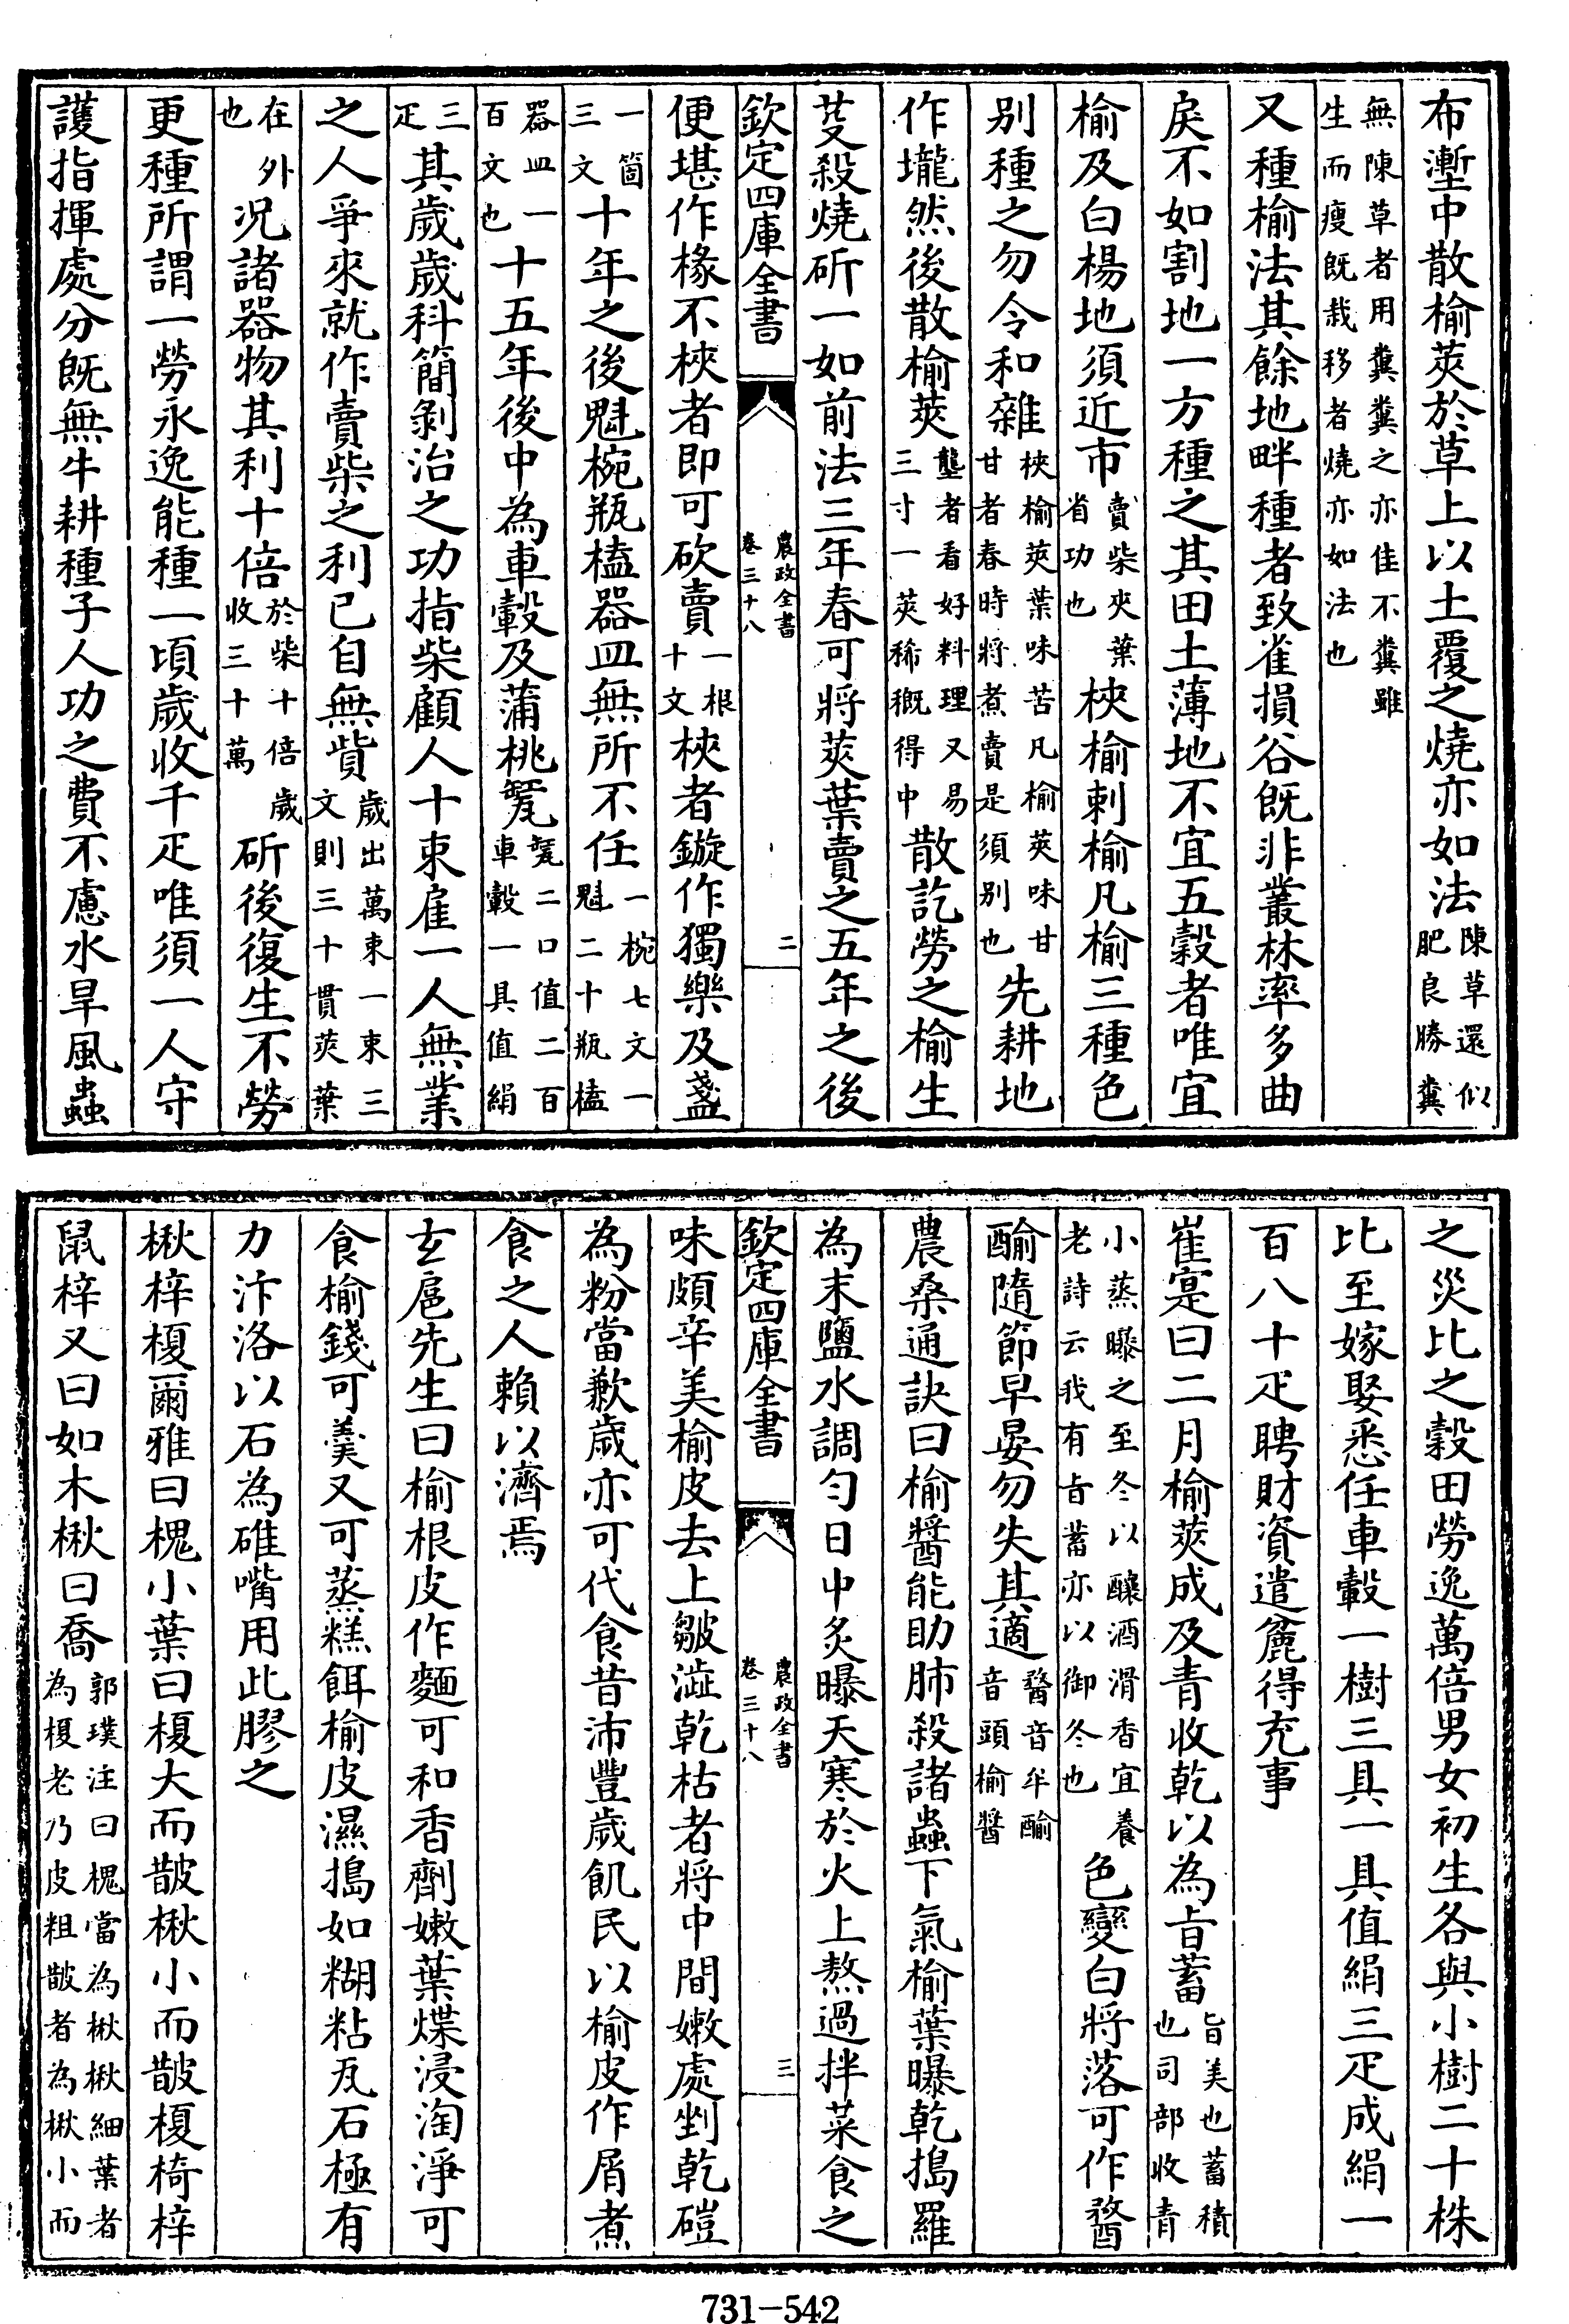 布壍中散榆莢於草上以土覆之燒亦如法陳草還似肥良勝糞
無陳草者用糞糞之亦佳不糞雖生而瘦既栽移者燒亦如法也
又種榆法其餘地畔種者致雀損谷既非叢林率多曲
戾不如割地一方種之其田土薄地不宜五穀者唯宜
榆及白楊地須近市賣柴夾葉省功也梜榆刺榆凡榆三種色
别種之勿令和雜梜榆莢葉味苦凡榆莢味甘甘者春時將煮賣是須别也先耕地
作壠然後散榆莢壟者看好料理又易三寸一莢稀穊得中散訖勞之榆生
芟殺燒斫一如前法三年春可將莢葉賣之五年之後
欽定四庫全書 農政全書卷三十八 二
便堪作椽不梜者即可砍賣一根十文梜者鏇作獨樂及盞
一箇三文十年之後魁椀瓶榼器皿無所不任一椀七文一魁二十瓶榼
器皿一百文也十五年後中為車轂及蒲桃㼜㼜二口值二百車轂一具值絹
三疋其歲歲科簡剝治之功指柴顧人十束雇一人無業
之人爭來就作賣柴之利已自無貲歲出萬束一束三文則三十貫莢葉
在外也况諸器物其利十倍於柴十倍歲收三十萬斫後復生不勞
更種所謂一勞永逸能種一頃歲收千疋唯須一人守
護指揮處分既無牛耕種子人功之費不慮水旱風蟲
之災比之穀田勞逸萬倍男女初生各與小樹二十株
比至嫁娶悉任車轂一樹三具一具值絹三疋成絹一
百八十疋聘財資遣麄得充事
崔寔曰二月榆莢成及青收乾以為旨蓄旨美也蓄積也司部收青
小蒸曝之至冬以釀酒滑香宜養老詩云我有旨蓄亦以御冬也色變白將落可作䝷
䤅隨節早晏勿失其適䝷音牟䤅音頭榆醬
農桑通訣曰榆醬能助肺殺諸蟲下氣榆葉曝乾搗羅
為末鹽水調勻日中炙曝天寒於火上熬過拌菜食之
欽定四庫全書 農政全書卷三十八 三
味頗辛美榆皮去上皺澁乾枯者將中間嫩處剉乾磑
為粉當歉歲亦可代食昔沛豐歲飢民以榆皮作屑煮
食之人賴以濟焉
玄扈先生曰榆根皮作麵可和香劑嫩葉煠浸淘淨可
食榆錢可羹又可蒸糕餌榆皮濕搗如糊粘瓦石極有
力汴洛以石為碓嘴用此膠之
楸梓榎爾雅曰槐小葉曰榎大而皵楸小而皵榎椅梓
鼠梓又曰如木楸曰喬郭璞注曰槐當為楸楸細葉者為榎老乃皮粗皵者為楸小而
731-542